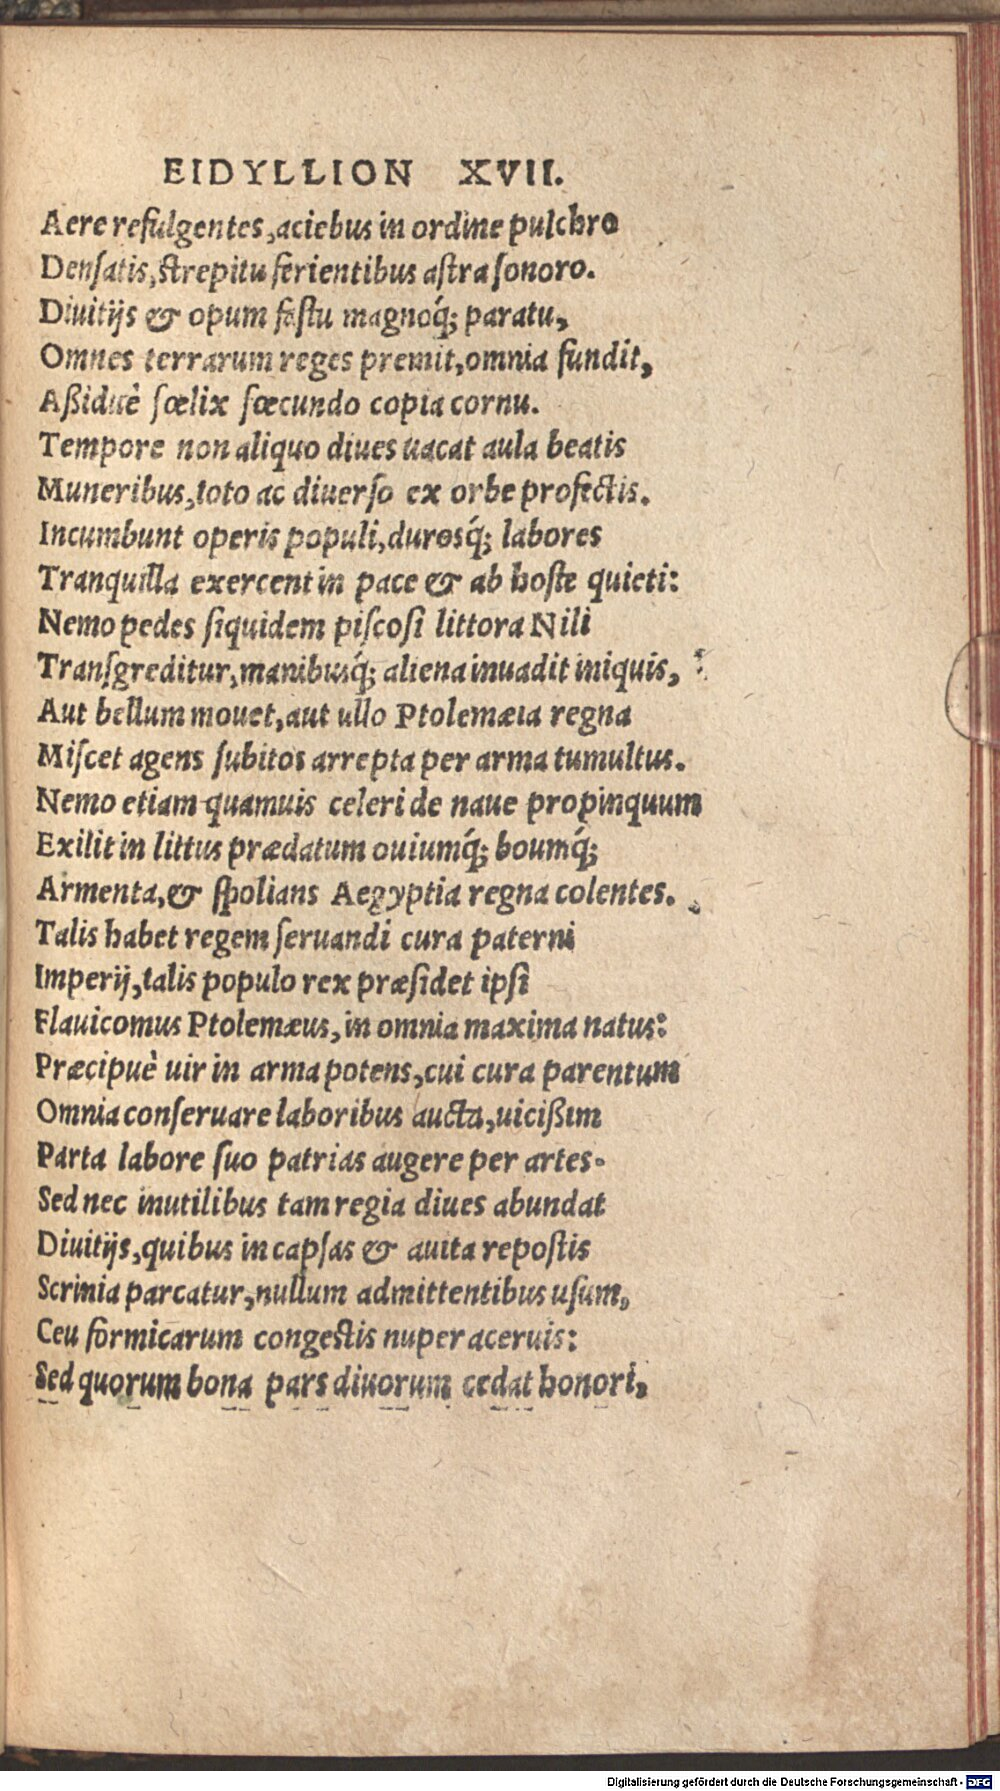 EIDYLLION XVII.
Aere refulgentes, aciebus in ordine pulchro
Denſatis, ſtrepitu ferientibus aſtra ſonoro.
Diuitijs & opum faſtu magnoq́; paratu,
Omnes terrarum reges premit, omnia fundit,
Aßiduè fœlix fœcundo copia cornu.
Tempore non aliquo diues uacat aula beatis
Muneribus, toto ac diuerſo ex orbe profectis.
Incumbunt operis populi, durosq́; labores
Tranquilla exercent in pace & ab hoſte quieti:
Nemo pedes ſiquidem piſcoſi littora Nili
Tranſgreditur, manibusq́; aliena inuadit iniquis,
Aut bellum mouet, aut ullo Ptolemæia regna
Miſcet agens ſubitos arrepta per arma tumultus.
Nemo etiam quamuis celeri de naue propinquum
Exilit in littus prædatum ouiumq́; boumq́;
Armenta, & ſpolians Aegyptia regna colentes.
Talis habet regem ſeruandi cura paterni
Imperij, talis populo rex præſidet ipſi
Flauicomus Ptolemæus, in omnia maxima natus:
Præcipuè uir in arma potens, cui cura parentum
Omnia conſeruare laboribus aucta, uicißim
Parta labore ſuo patrias augere per artes.
Sed nec inutilibus tam regia diues abundat
Diuitijs, quibus in capſas & auita repoſtis
Scrinia parcatur, nullum admittentibus uſum,
Ceu formicarum congeſtis nuper aceruis:
Sed quorum bona pars diuorum cedat honori,
Digitalisierung gefördert durch die Deutsche Forschungsgemeinschaft - DFG